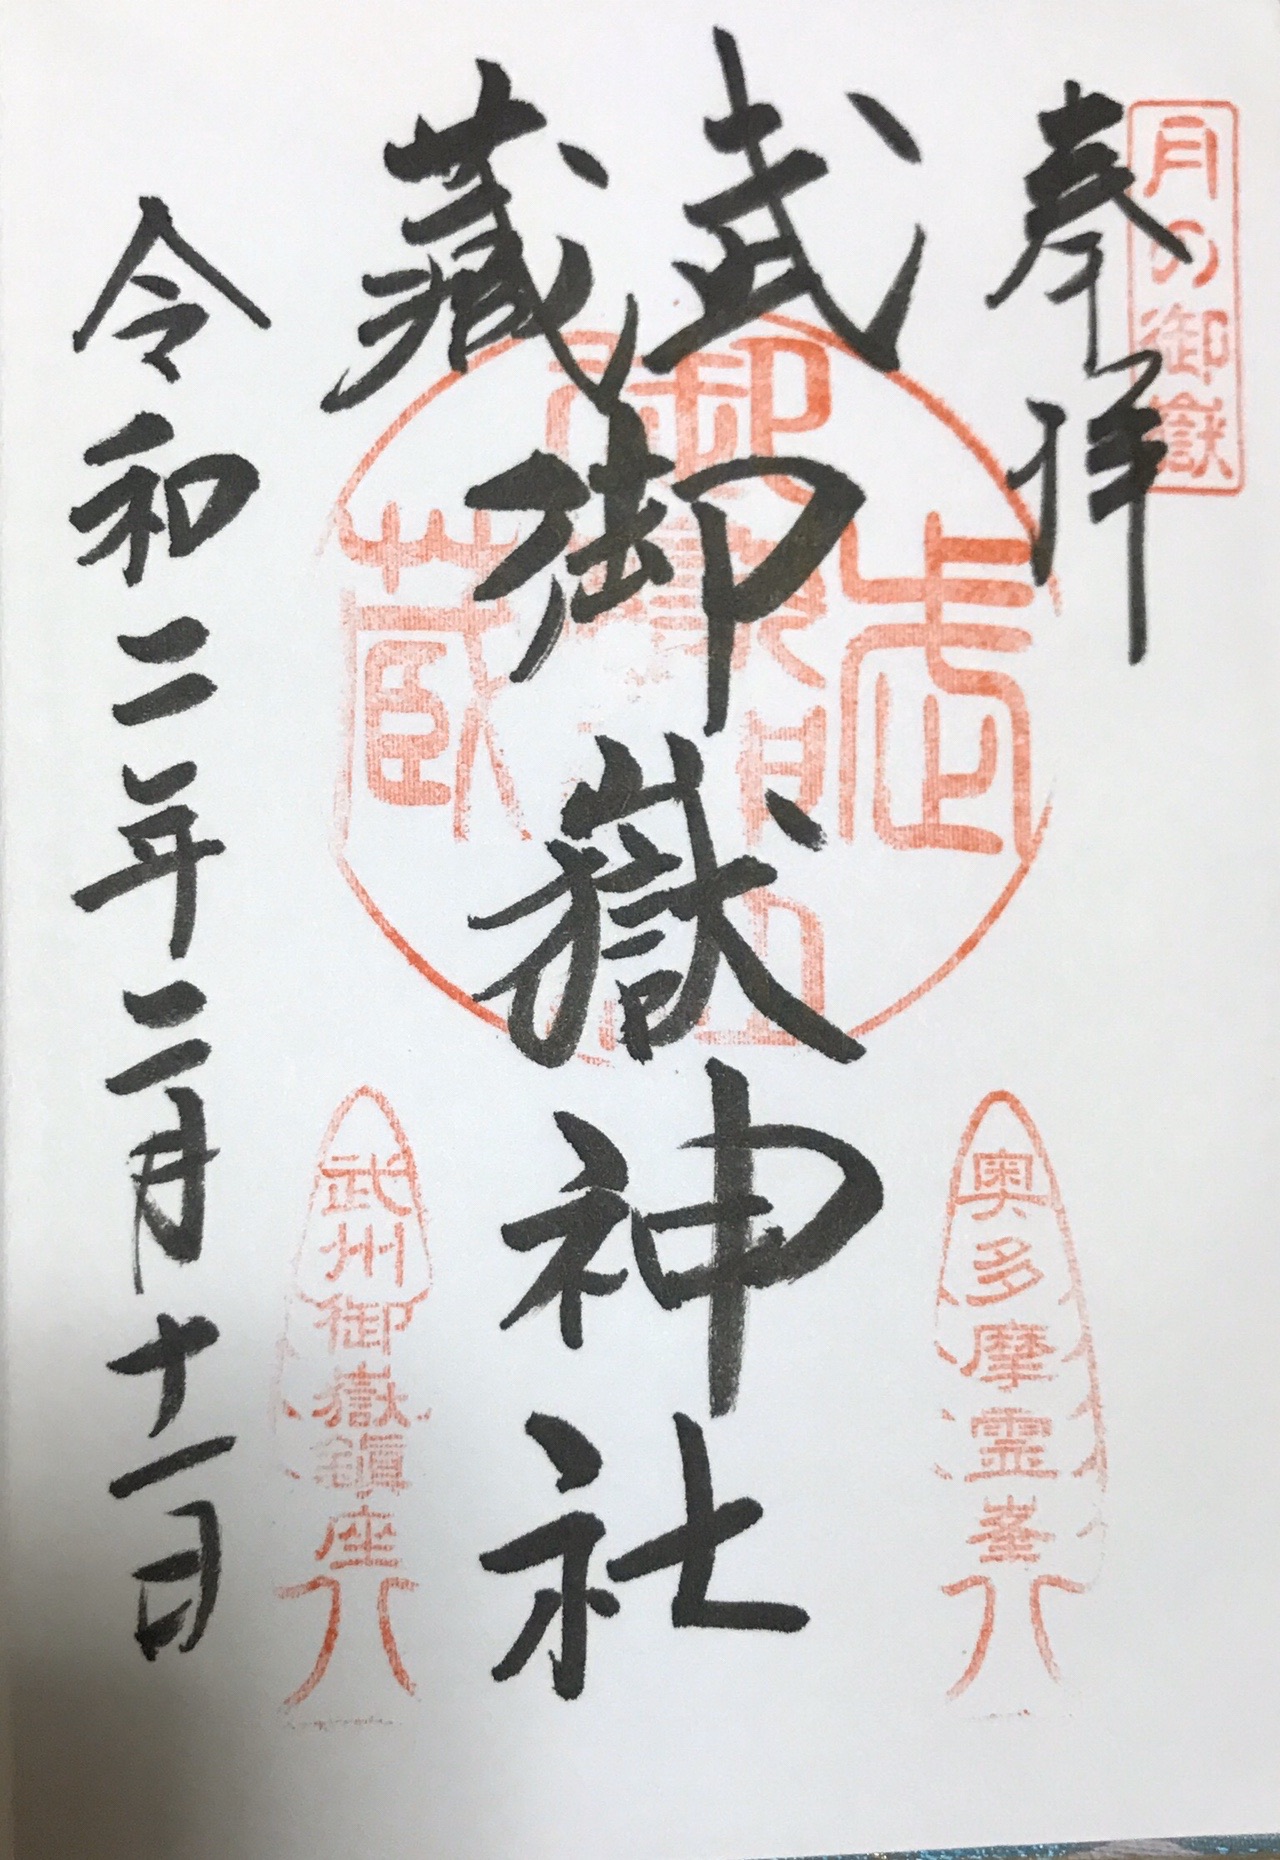 月の御嶽
奉拝
武蔵
御嶽神社
武蔵
御嶽
奥多摩霊峯
武州御嶽鎮座
令和二年二月十一日